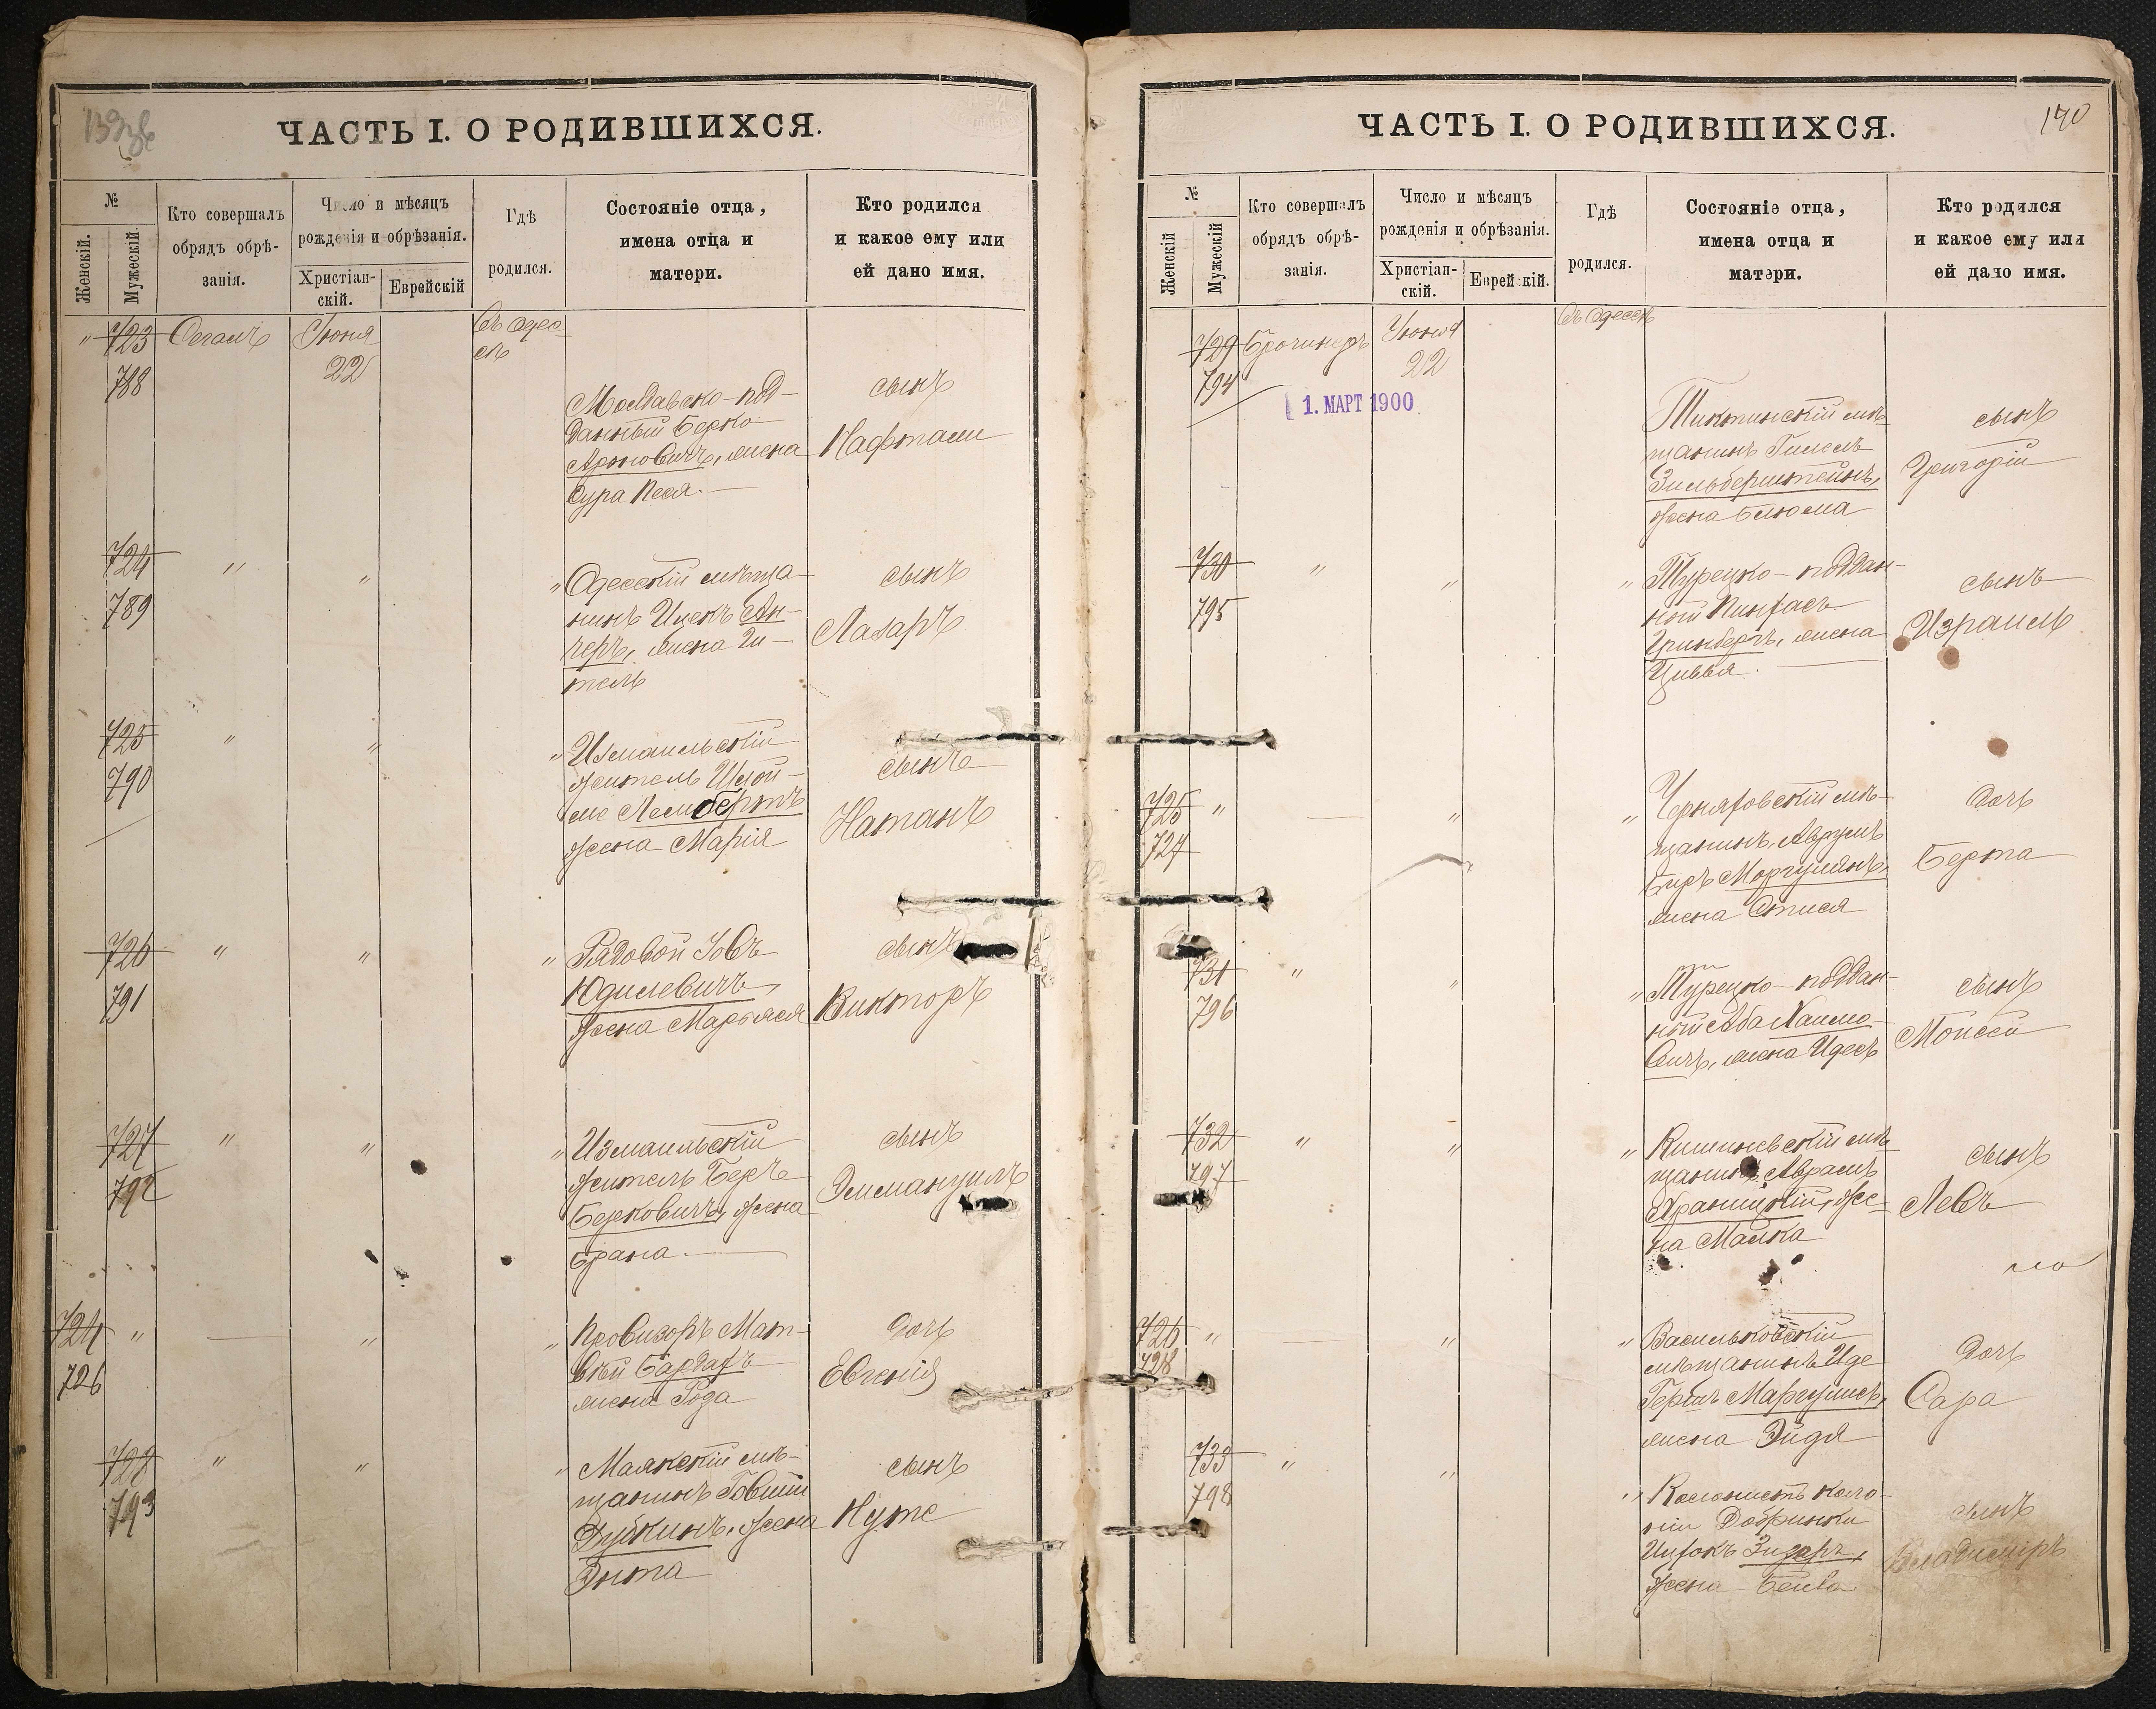 ЧАСТЬ I. О РОДИВШИХСЯ.
№
Женскій.
Мужескій.
Кто совершалъ
обрядъ обрѣ-
занія.
Число и мѣсяцъ
рожденія и обрѣзанія.
Христіан-
скій.
Еврейскій
Гдѣ
родился.
Состояніе отца,
имена отца и
матери.
Кто родился
и какое ему или
ей дано имя.
" 723 Сегалъ Іюня Въ Одес-
788 22 сѣ
Молдавско-под-
данный Берко
Ароновичъ, жена
Сура Песя.
сынъ
Нафтали
724 " " "
789
Одесскій мѣща-
нинъ Ицекъ
жена Ги-
тель
сынъ
Лазаръ
725 " " "
790
Измаильскій
житель Шлой-
ме Лемберт
жена Марія
сынъ
Натанъ
726 " " "
791
Рядовой Іовъ
Юдилевичъ,
жена Марьяся
сынъ
Викторъ
727 " " "
792
Измаильскій
житель Беръ
Берковичъ, жена
Брана.
сынъ
Эммануилъ
724 " — " "
726
Провизоръ Мат-
вѣй Бардахъ
жена Рода
дочь
Евгенія
728 " " "
793
Маякскій мѣ-
щанинъ Говшій
жена
Энта
сынъ
Нута
ЧАСТЬ I. О РОДИВШИХСЯ.
140
№
Женскій
Мужескій
Кто совершалъ
обрядъ обрѣ-
занія.
Число и мѣсяцъ
рожденія и обрѣзанія.
Христіан-
скій.
Еврейскій.
Гдѣ
родился.
Состояніе отца,
имена отца и
матери.
Кто родился
и какое ему или
ей дано имя.
729 Брочинеръ Іюня Въ Одессѣ
794 22
1. МАРТ 1900
Тиктинскій мѣ-
щанинъ Гилель
Зильберштейнъ,
жена Блюма
сынъ
Григорій
730 " " "
795
Турецко-поддан-
ный Пинхасъ
Гринбергъ, жена
Цивья.
сынъ
Израиль
725 " — " "
727
Черняховскій мѣ-
щанинъ Аврумъ
Беръ Моргулянъ,
жена
дочь
Берта
731 " " "
796
Турецко-поддан-
ный Аба Хаимо-
вичъ, жена Идесъ
сынъ
Моисей
732 " " "
797
Кишиневскій мѣ-
щанинъ Абрамъ
же-
на Малка
сынъ
Левъ
726 " — " "
728
Васильковскій
мѣщанинъ Иде
Гершъ Маргулисъ,
жена Эйдя
дочь
Сара
733 " " "
798
Колонистъ коло-
ніи Добринки
жена Бейла
сынъ
Владиміръ